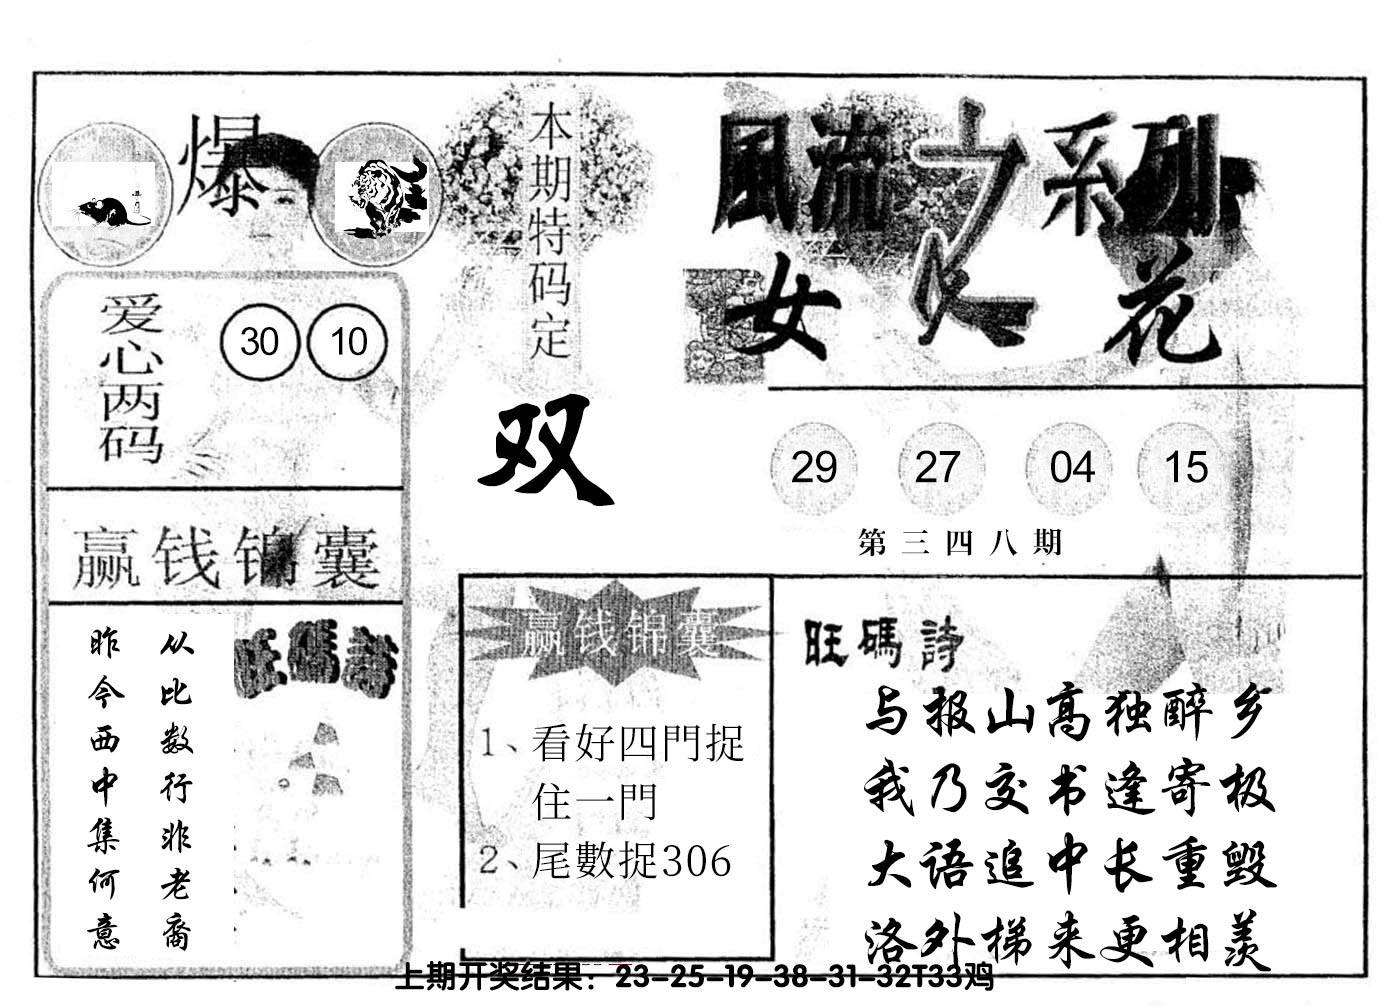 爆
本期特码定
双
風流之系列
女人花
爱心两码
30 10
29 27 04 15
第三四八期
赢钱锦囊
从比数行非老裔
昨今西中集何意
旺碼詩
赢钱锦囊
1、看好四門捉
住一門
2、尾數捉306
旺碼詩
与报山高独醉乡
我乃交书逢寄极
大语追中长重毁
洛外梯来更相羡
上期开奖结果：23-25-19-38-31-32T33鸡